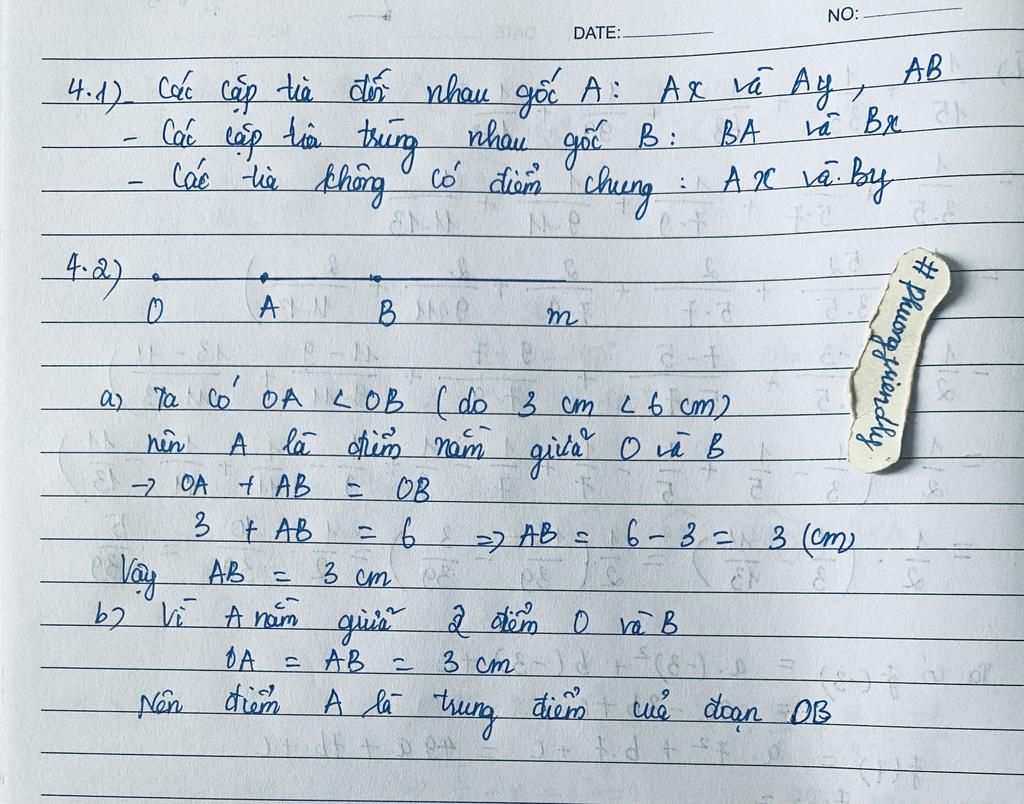 NO:
DATE:
4.1) - Các cặp tia đối nhau gốc A: Ax và Ay, AB
- Các cặp tia trùng nhau gốc B: BA và Bx
- Các tia không có điểm chung: Ax và By
4.2)
O A B m
a) Ta có OA < OB (do 3 cm < 6 cm)
nên A là điểm nằm giữa O và B
→ OA + AB = OB
3 + AB = 6 => AB = 6 - 3 = 3 (cm)
Vậy AB = 3 cm
b) Vì A nằm giữa 2 điểm O và B
OA = AB = 3 cm
Nên điểm A là trung điểm của đoạn OB
#Phuongfriendly